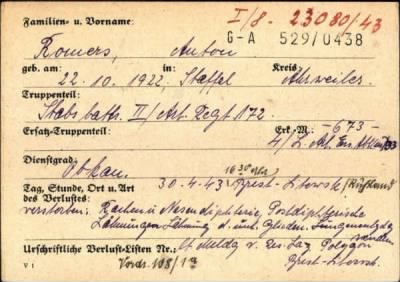 I/8 - 23080/43
Familien- u. Vorname:
G-A 529/0438
Romers, Anton
geb. am: in: Kreis:
22. 10. 1922, Staffel Ahrweiler
Truppenteil:
Stabsbattr. II/Art. Regt. 172
Ersatz-Truppenteil: Erk.-M.: -673-
4/l. Art. Ers. Abt.
Dienstgrad:
Obkan.
Tag, Stunde, Ort u. Art des Verlustes:
30-4-43 16 30 Uhr Brest-Litowsk/Rußland
verstorben: Rachen u Nasendiphterie, Postdiphterische
Lähmungen Lähmung d. unt. Glieder. Lungenentzdg
Urschriftliche Verlust-Listen Nr.: lt Meldg v. Res. Laz. Polygon
Brest-Litowsk
V 1 Vordr. 108/19